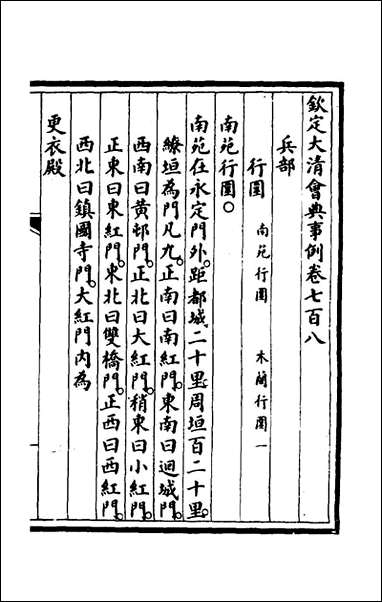 欽定大清會典事例卷七百八
兵部
行圍　南苑行圍　木蘭行圍一
南苑行圍○
南苑在永定門外。距都城二十里。周垣百二十里。
繚垣為門凡九。正南曰南紅門。東南曰迴城門。
西南曰黃邨門。正北曰大紅門。稍東曰小紅門。
正東曰東紅門。東北曰雙橋門。正西曰西紅門。
西北曰鎮國寺門。大紅門內為
更衣殿